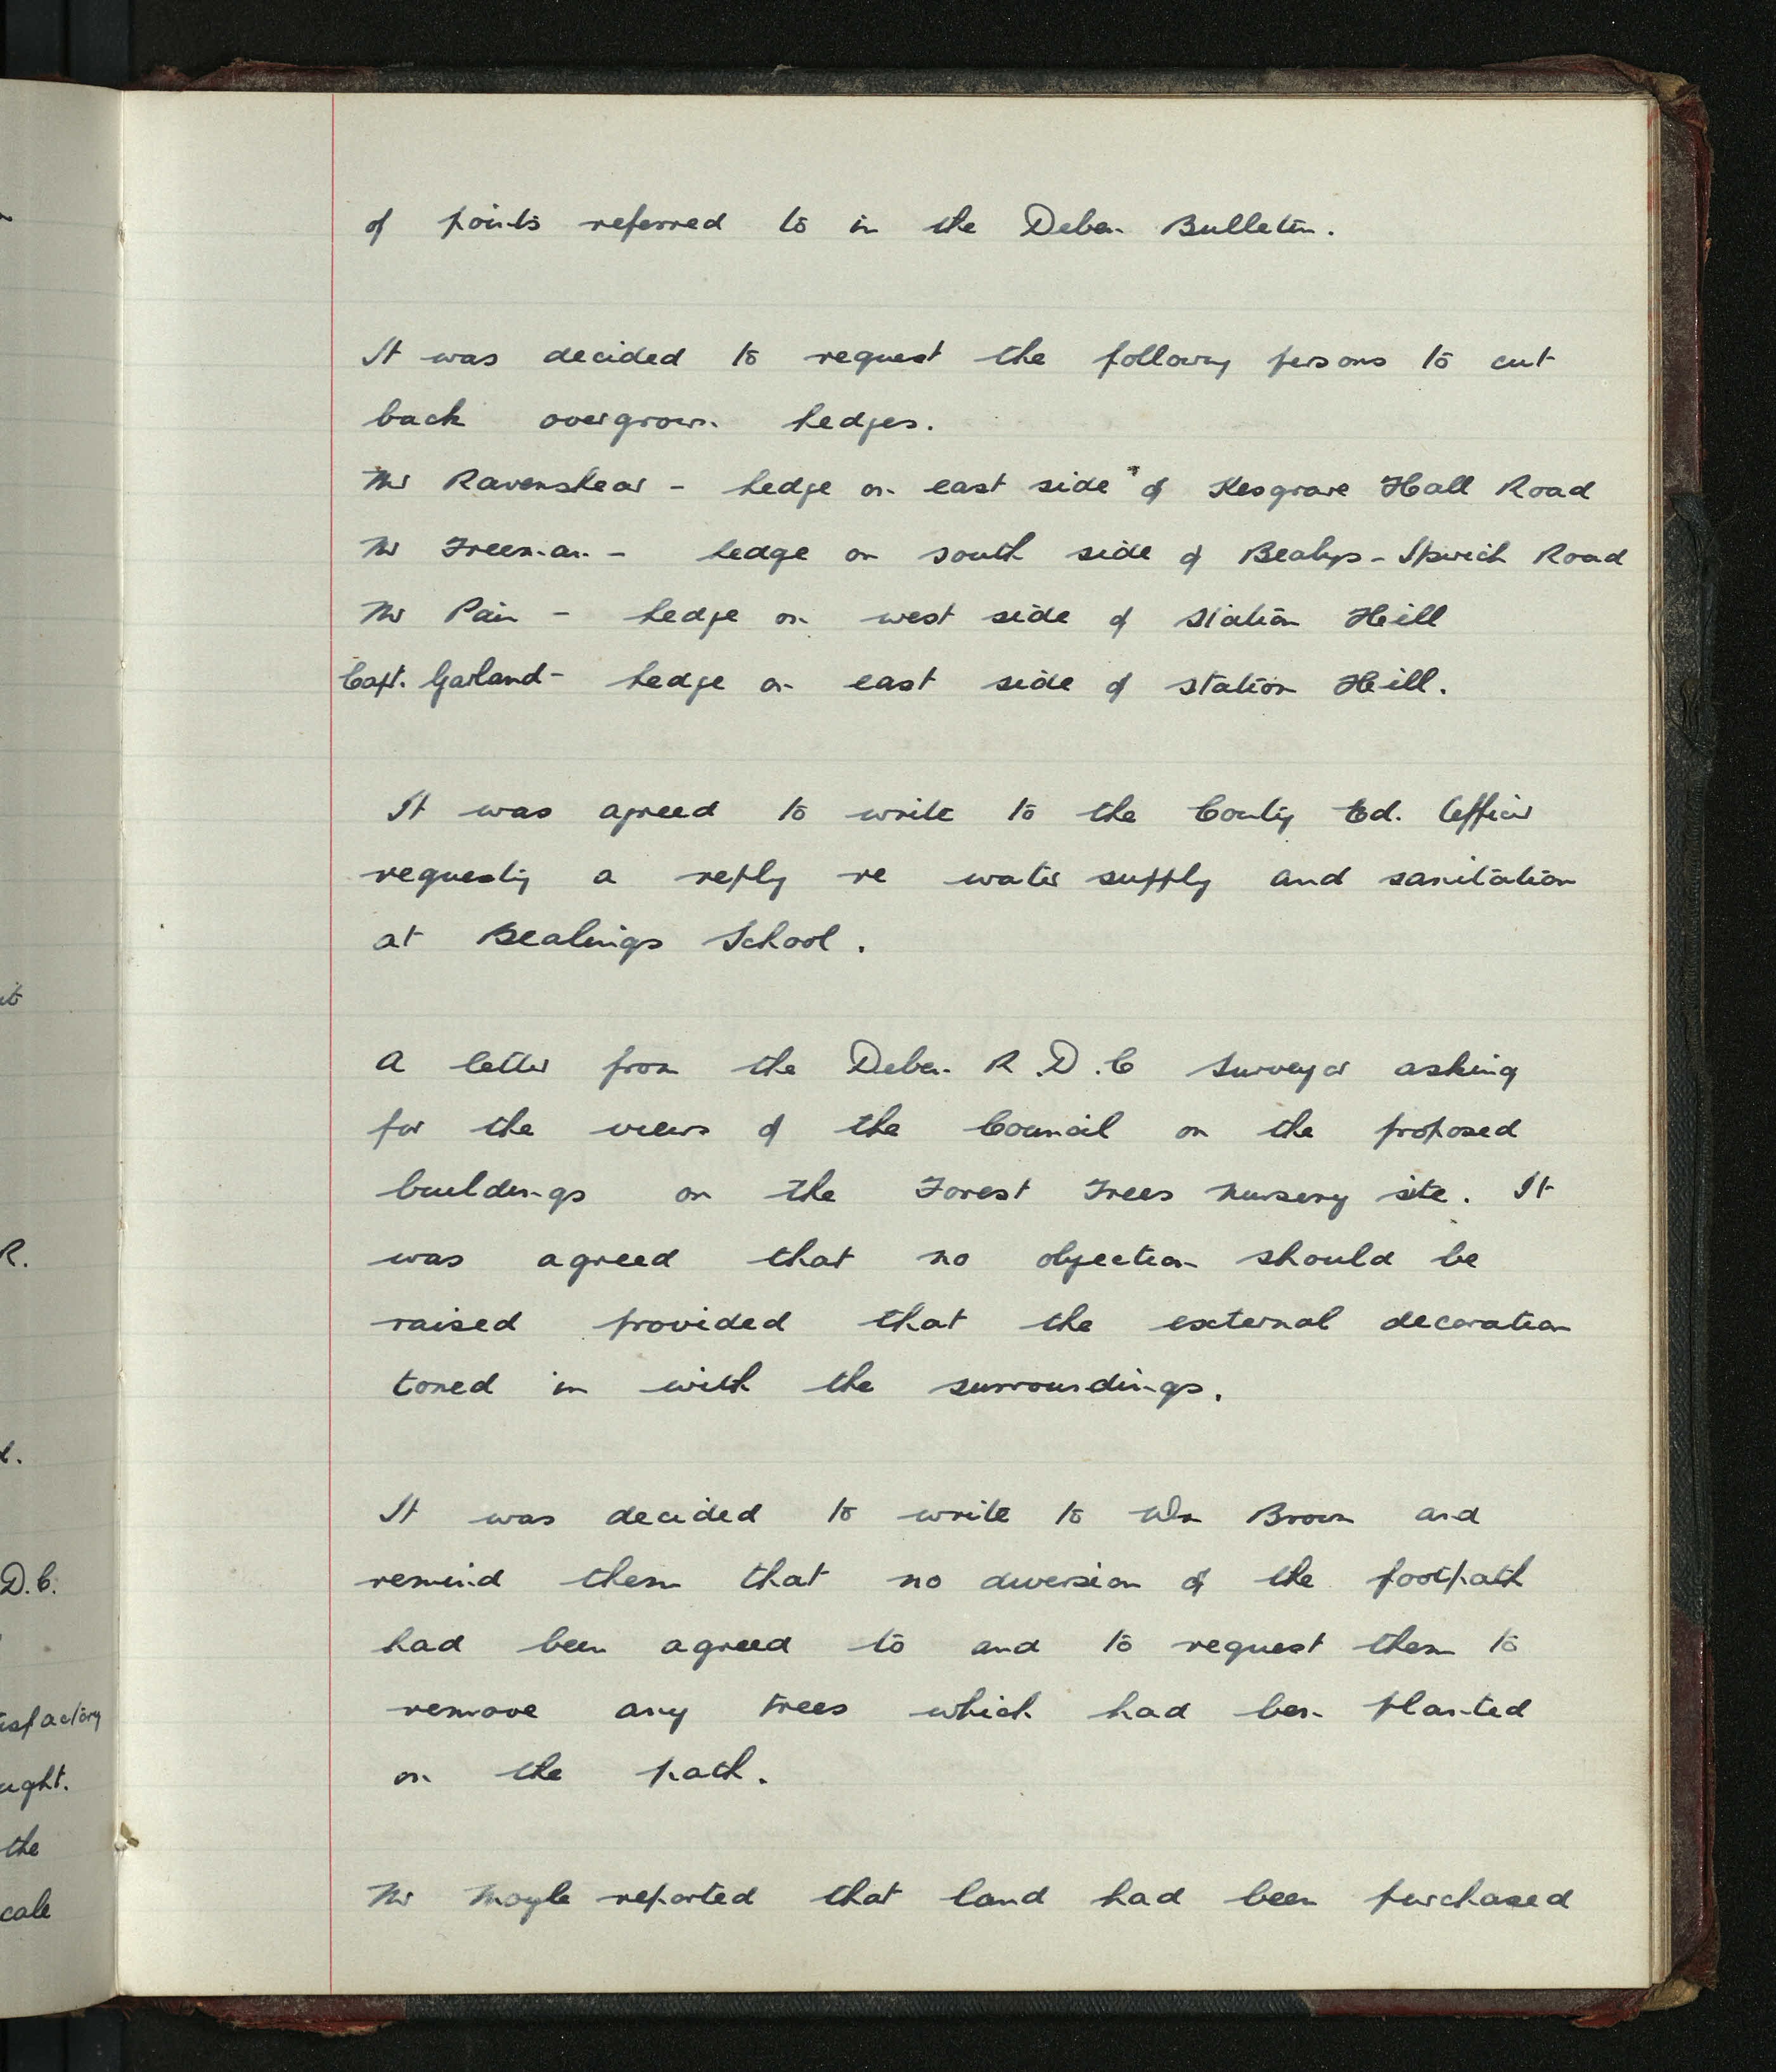 of points referred to in the Deben Bulletin.
It was decided to request the following persons to cut
back overgrown hedges.
Mr Ravenshear - hedge on east side of Kesgrave Hall Road
Mr Freeman - hedge on south side of Bealings - Ipswich Road
Mr Pain - hedge on west side of Station Hill
Capt. Garland - hedge on east side of Station Hill.
It was agreed to write to the County Ed. Officer
requesting a reply re water supply and sanitation
at Bealings School.
A letter from the Deben R.D.C Surveyor asking
for the views of the Council on the proposed
buildings on the Forest Trees Nursery site. It
was agreed that no objection should be
raised provided that the external decoration
toned in with the surroundings.
It was decided to write to Wm Brown and
remind them that no diversion of the footpath
had been agreed to and to request them to
remove any trees which had been planted
on the path.
Mr Moyle reported that land had been purchased